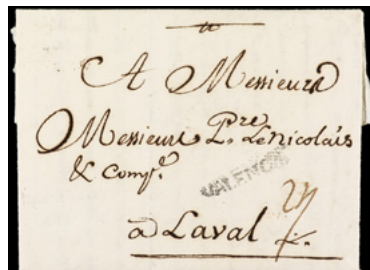 A Messieurs
Messieurs Pre. LeNicolais
& Compe.
VALENCE
à Laval